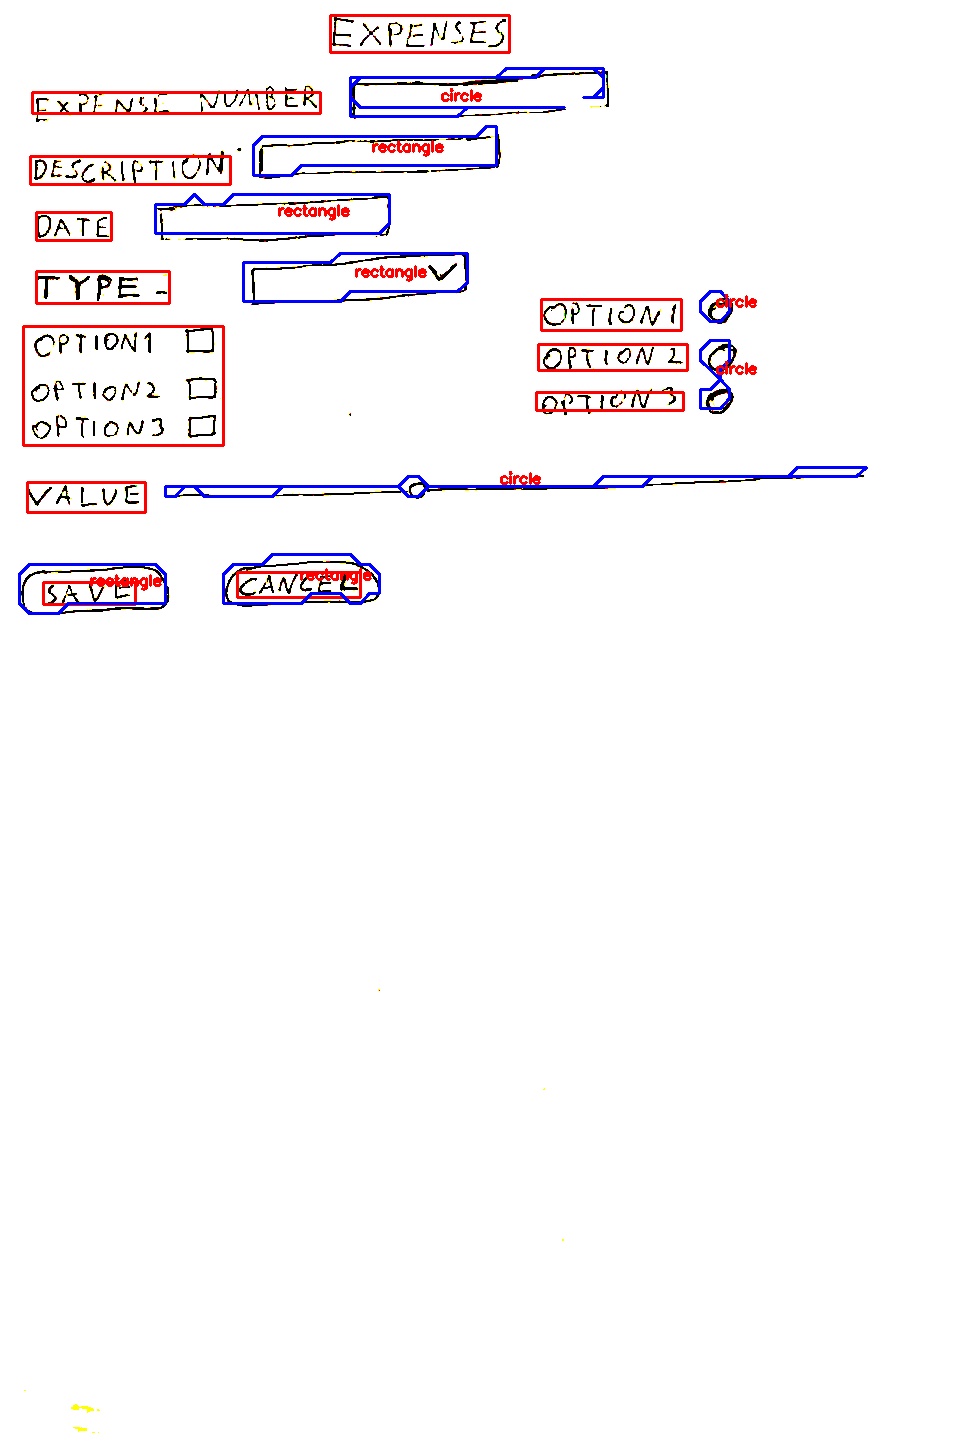 EXPENSES
EXPENSE NUMBER circle
DESCRIPTION rectangle
DATE rectangle
TYPE - rectangle
OPTION1 circle
OPTION 2 circle
OPTION 3
OPTION1
OPTION2
OPTION3
VALUE circle
SAVE rectangle CANCEL rectangle